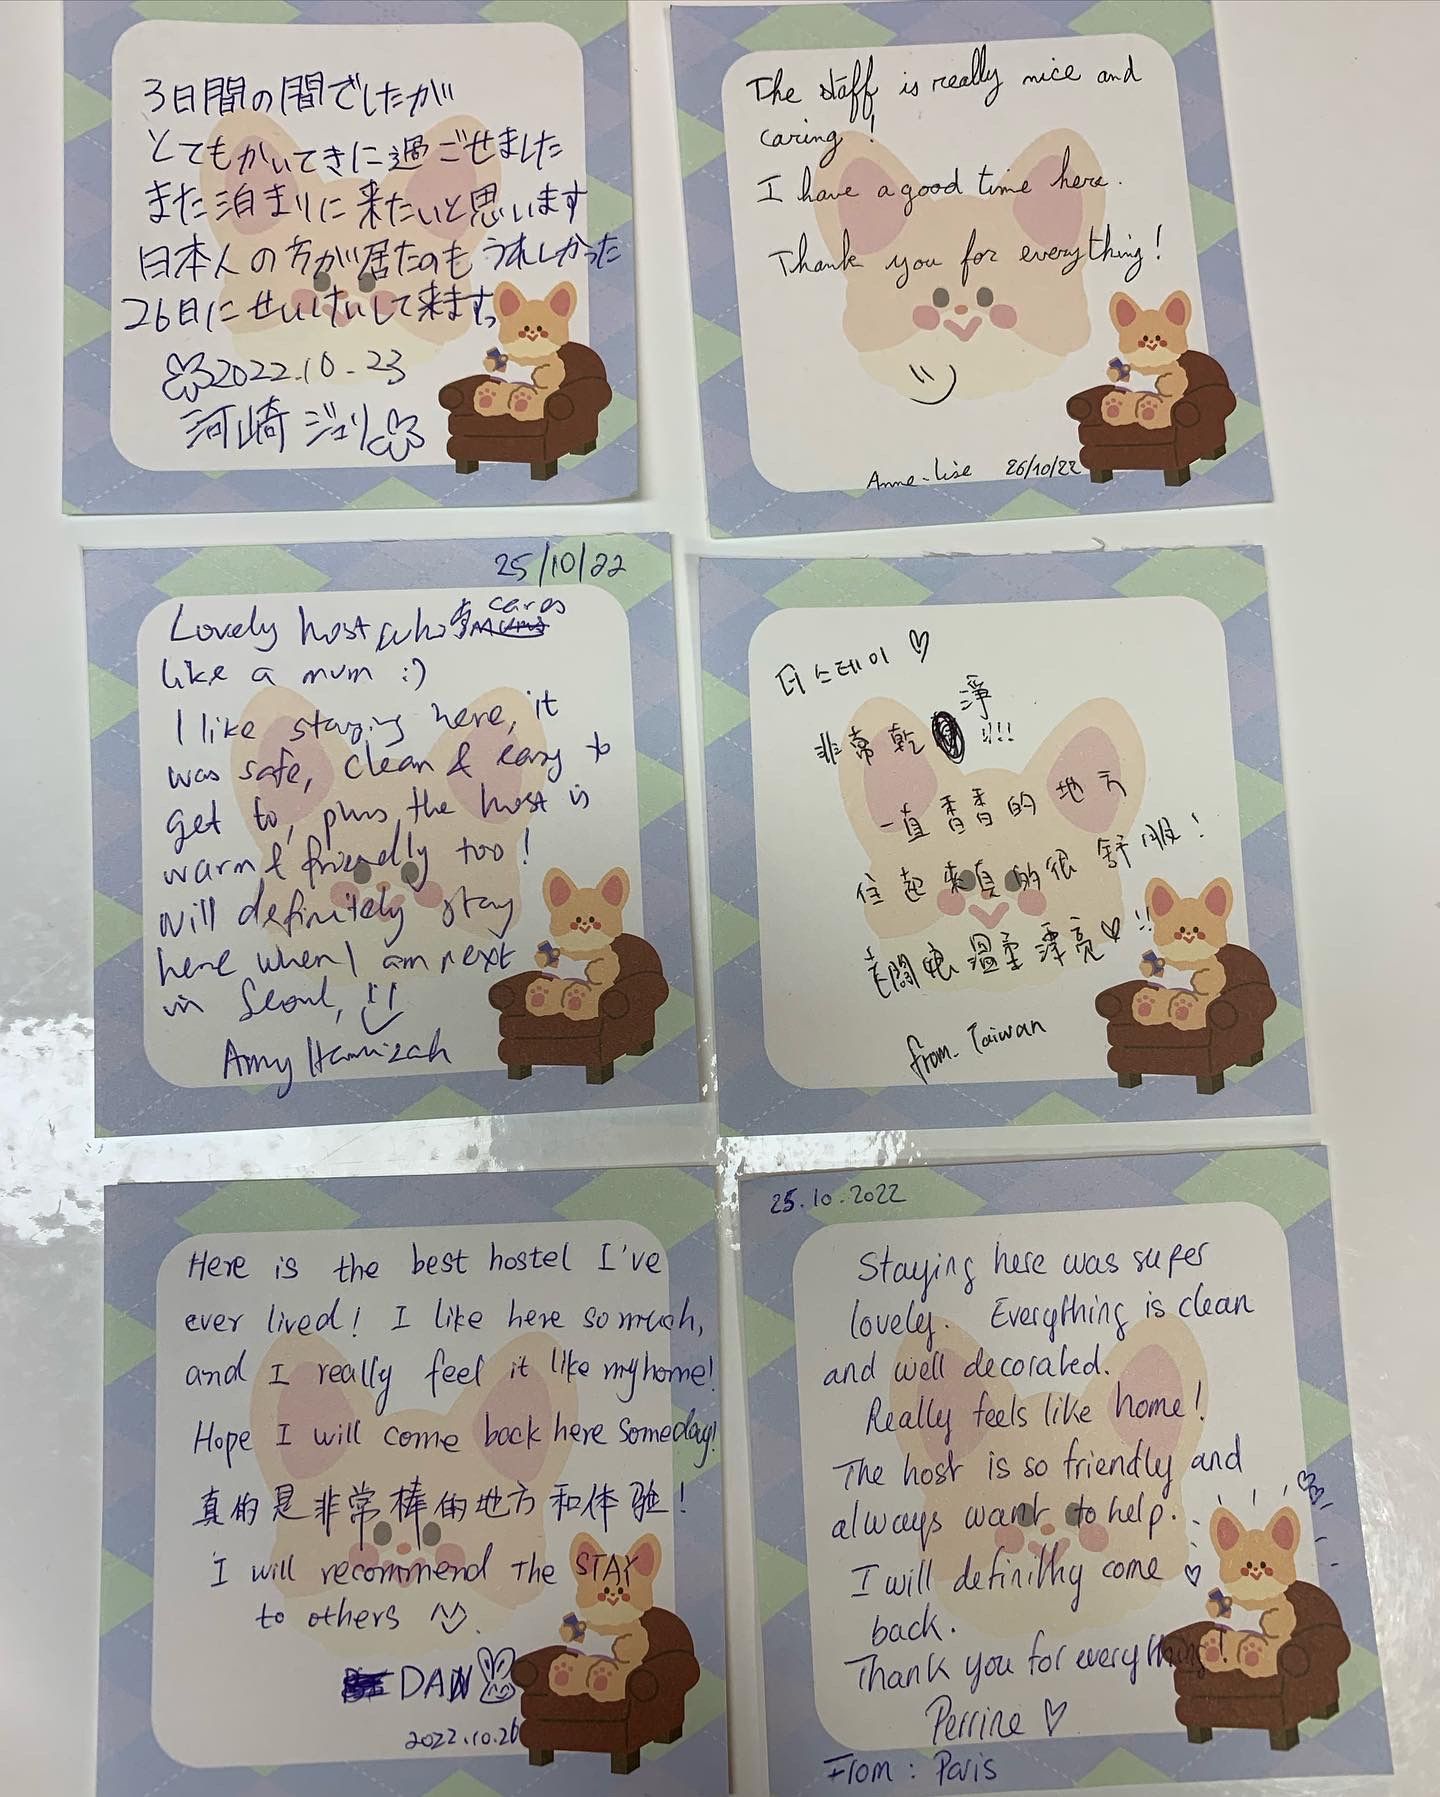 3日間の間でしたが
とてもかいてきに過ごせました
また泊まりに来たいと思います
日本人の方が居たのもうれしかった
26日にせいけいして来ますっ
2022.10.23
河崎 ジュリ
The staff is really nice and
caring !
I have a good time here.
Thank you for everything!
Anne-Lise 26/10/22
25/10/22
Lovely host who cares
like a mum :)
I like staying here, it
was safe, clean & easy to
get to, plus the host is
warm & friendly too!
Will definitely stay
here when I am next
in Seoul,
Amy Hamizah
더 스테이 ♡
非常乾淨!!!
一直香香的地方
住起來真的很舒服!
老闆娘溫柔漂亮♡!!
from. Taiwan
Here is the best hostel I've
ever lived! I like here so much,
and I really feel it like my home!
Hope I will come back here someday!
真的是非常棒的地方和体验!
I will recommend THE STAY
to others
DAW
2022.10.26
25.10.2022
Staying here was super
lovely. Everything is clean
and well decorated.
Really feels like home!
The host is so friendly and
always want to help.
I will definithy come
back.
Thank you for everything!
Perrine ♡
From : Paris